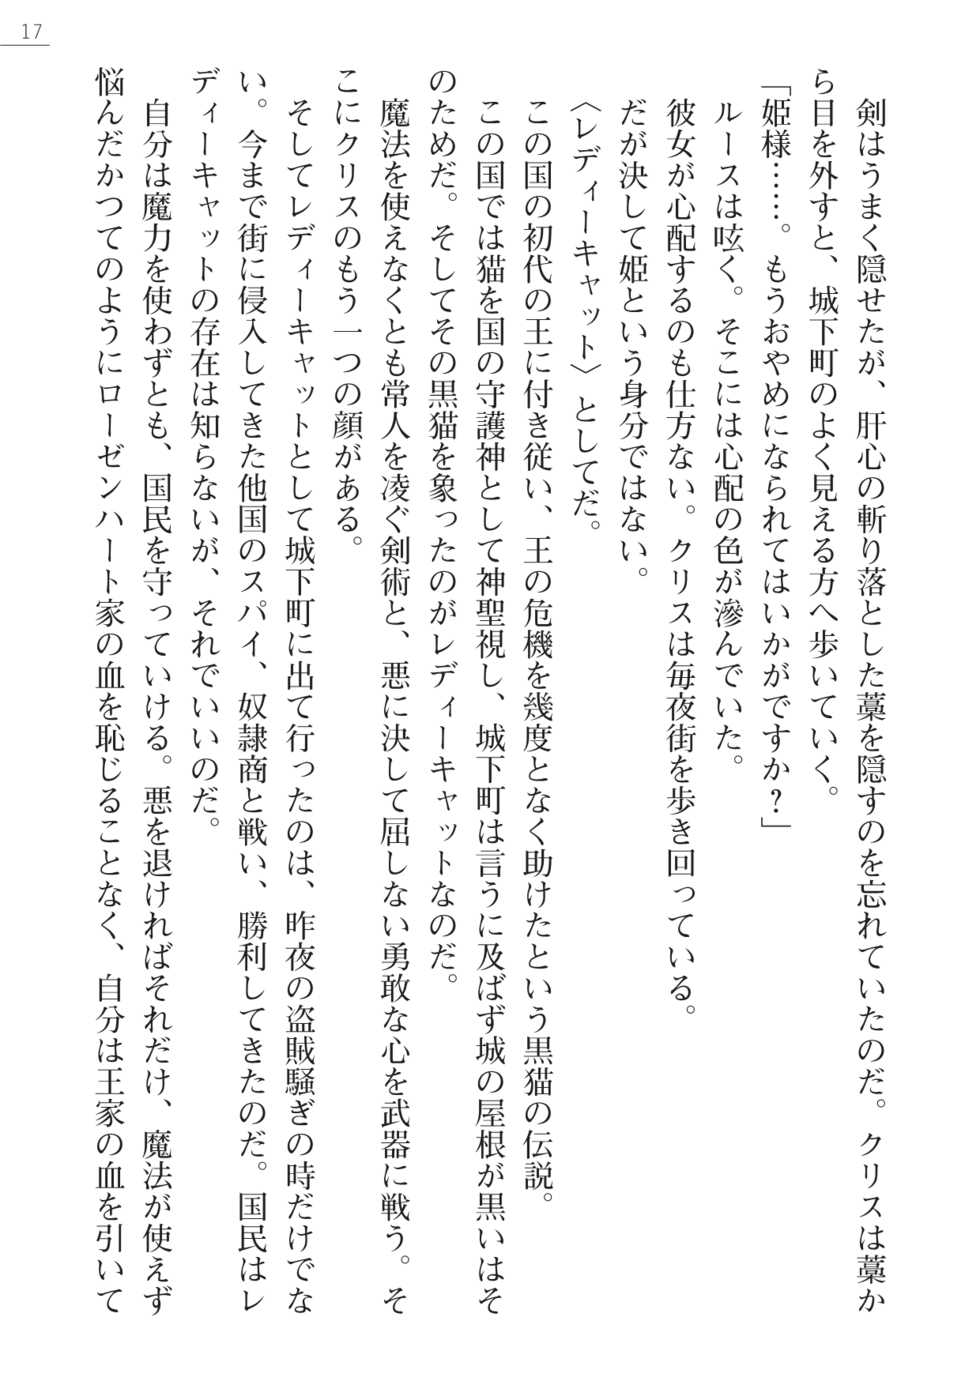 17
剣はうまく隠せたが、肝心の斬り落とした藁を隠すのを忘れていたのだ。クリスは藁か
ら目を外すと、城下町のよく見える方へ歩いていく。
「姫様……。もうおやめになられてはいかがですか？」
ルースは呟く。そこには心配の色が滲んでいた。
彼女が心配するのも仕方ない。クリスは毎夜街を歩き回っている。
だが決して姫という身分ではない。
〈レディーキャット〉としてだ。
この国の初代の王に付き従い、王の危機を幾度となく助けたという黒猫の伝説。
この国では猫を国の守護神として神聖視し、城下町は言うに及ばず城の屋根が黒いはそ
のためだ。そしてその黒猫を象ったのがレディーキャットなのだ。
魔法を使えなくとも常人を凌ぐ剣術と、悪に決して屈しない勇敢な心を武器に戦う。そ
こにクリスのもう一つの顔がある。
そしてレディーキャットとして城下町に出て行ったのは、昨夜の盗賊騒ぎの時だけでな
い。今まで街に侵入してきた他国のスパイ、奴隷商と戦い、勝利してきたのだ。国民はレ
ディーキャットの存在は知らないが、それでいいのだ。
自分は魔力を使わずとも、国民を守っていける。悪を退ければそれだけ、魔法が使えず
悩んだかつてのようにローゼンハート家の血を恥じることなく、自分は王家の血を引いて